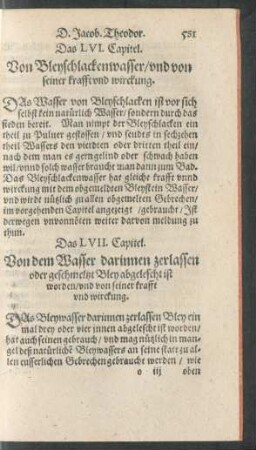 D. Jacob. Theodor. 581
Das LVI. Capitel.
Von Bleyschlackenwasser/vnd von
seiner krafft vnd wirckung.
DAs Wasser von Bleyschlacken ist vor sich
selbst kein natürlich Wasser/sondern durch das
sieden bereit. Man nimpt der Bleyschlacken ein
theil zu Puluer gestossen/vnd seudts in sechzehen
theil Wassers den vierdten oder dritten theil ein/
nach dem man es gern gelind oder schwach haben
wil/vnnd solch wasser braucht man dann zum Bad.
Das Bleyschlackenwasser hat gleiche krafft vnnd
wirckung mit dem obgemeldten Bleystein Wasser/
vnd wirdt nüzlich zu allen obgemelten Gebrechen/
im vorgehenden Capitel angezeigt/gebraucht/Ist
derwegen vnvonnöten weiter darvon meldung zu
thun.
Das LVII. Capitel.
Von dem Wasser darinnen zerlassen
oder geschmeltzt Bley abgelescht ist
worden/vnd von seiner krafft
vnd wirckung.
DAs Bleywasser darinnen zerlassen Bley ein
mal drey oder vier innen abgelescht ist worden/
hat auch seinen gebrauch/vnd mag nützlich in man-
gel deß natürlichē Bleywassers an seine statt zu al-
len eusserlichen Gebrechen gebraucht werden/wie
o iij oben